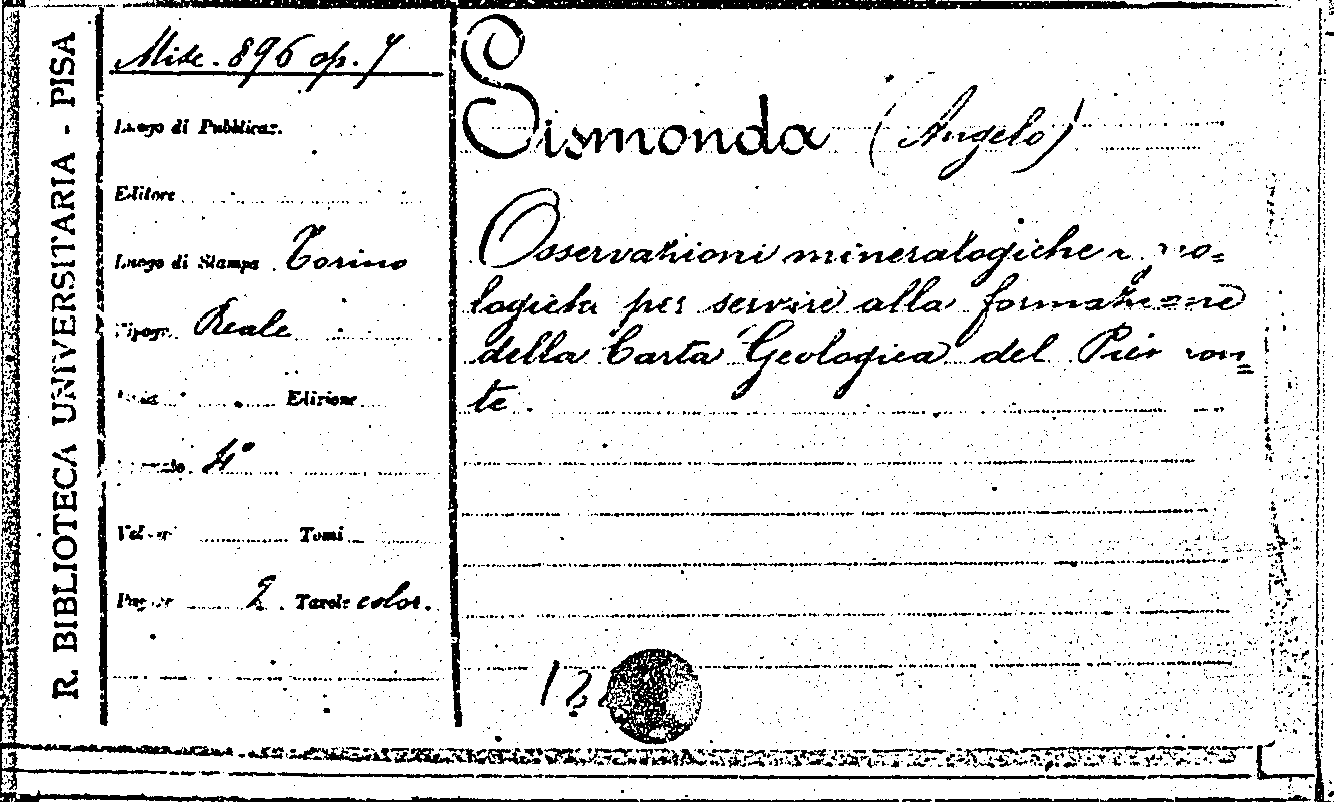 R. BIBLIOTECA UNIVERSITARIA - PISA
Misc. 896 op. 7
Luogo di Pubblicaz.
Editore
Luogo di Stampa Torino
Tipogr. Reale
Edizione
4°
Tomi
2 Tavole color.
Sismonda (Angelo)
Osservazioni mineralogiche
per servire alla formazione
della Carta Geologica del Piemon=
te.